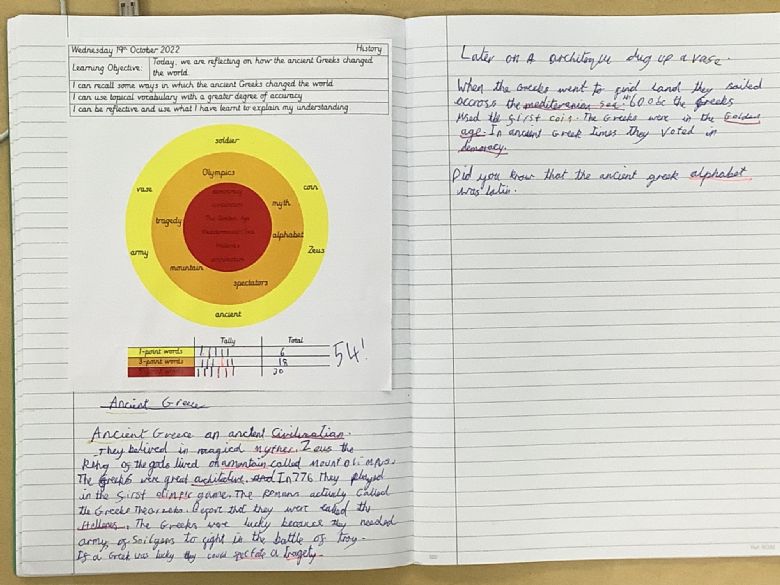 Wednesday 19th October 2022 History
Learning Objective: Today, we are reflecting on how the ancient Greeks changed
the world.
I can recall some ways in which the ancient Greeks changed the world
I can use topical vocabulary with a greater degree of accuracy
I can be reflective and use what I have learnt to explain my understanding
soldier
Olympics
vase
coin
democracy
civilisation
myth
The Golden Age
tragedy
Mediterranean Sea
alphabet
Hellenes
army
Zeus
architecture
mountain
spectators
ancient
Tally Total
1-point words 6
3-point words 18
5-point words 30
54!
Ancient Greece
Ancient Greece an ancient Civilization.
They belived in magical myther. Zeus the
King of the gods lived on a mountain called mount Olimpus.
The greeks wer great architecture. And In 776 They played
in the first olimpic game. The Romans actively called
the Greeks Before that they were called the
Hellenes. The Greeks were lucky because they needed
army of Soilgers to fight in the battle of Troy.
If a Greek was lucky they could a tragety.
Later on A architeque dug up a vase.
When the Greeks went to find land they sailed
accross the mediteranian sea. 600bc the Greeks
used the first coin. The Greeks were in the Golden
age. In ancient Greek times they voted in
democracy.
Did you know that the ancient greek alphabet
was latin.